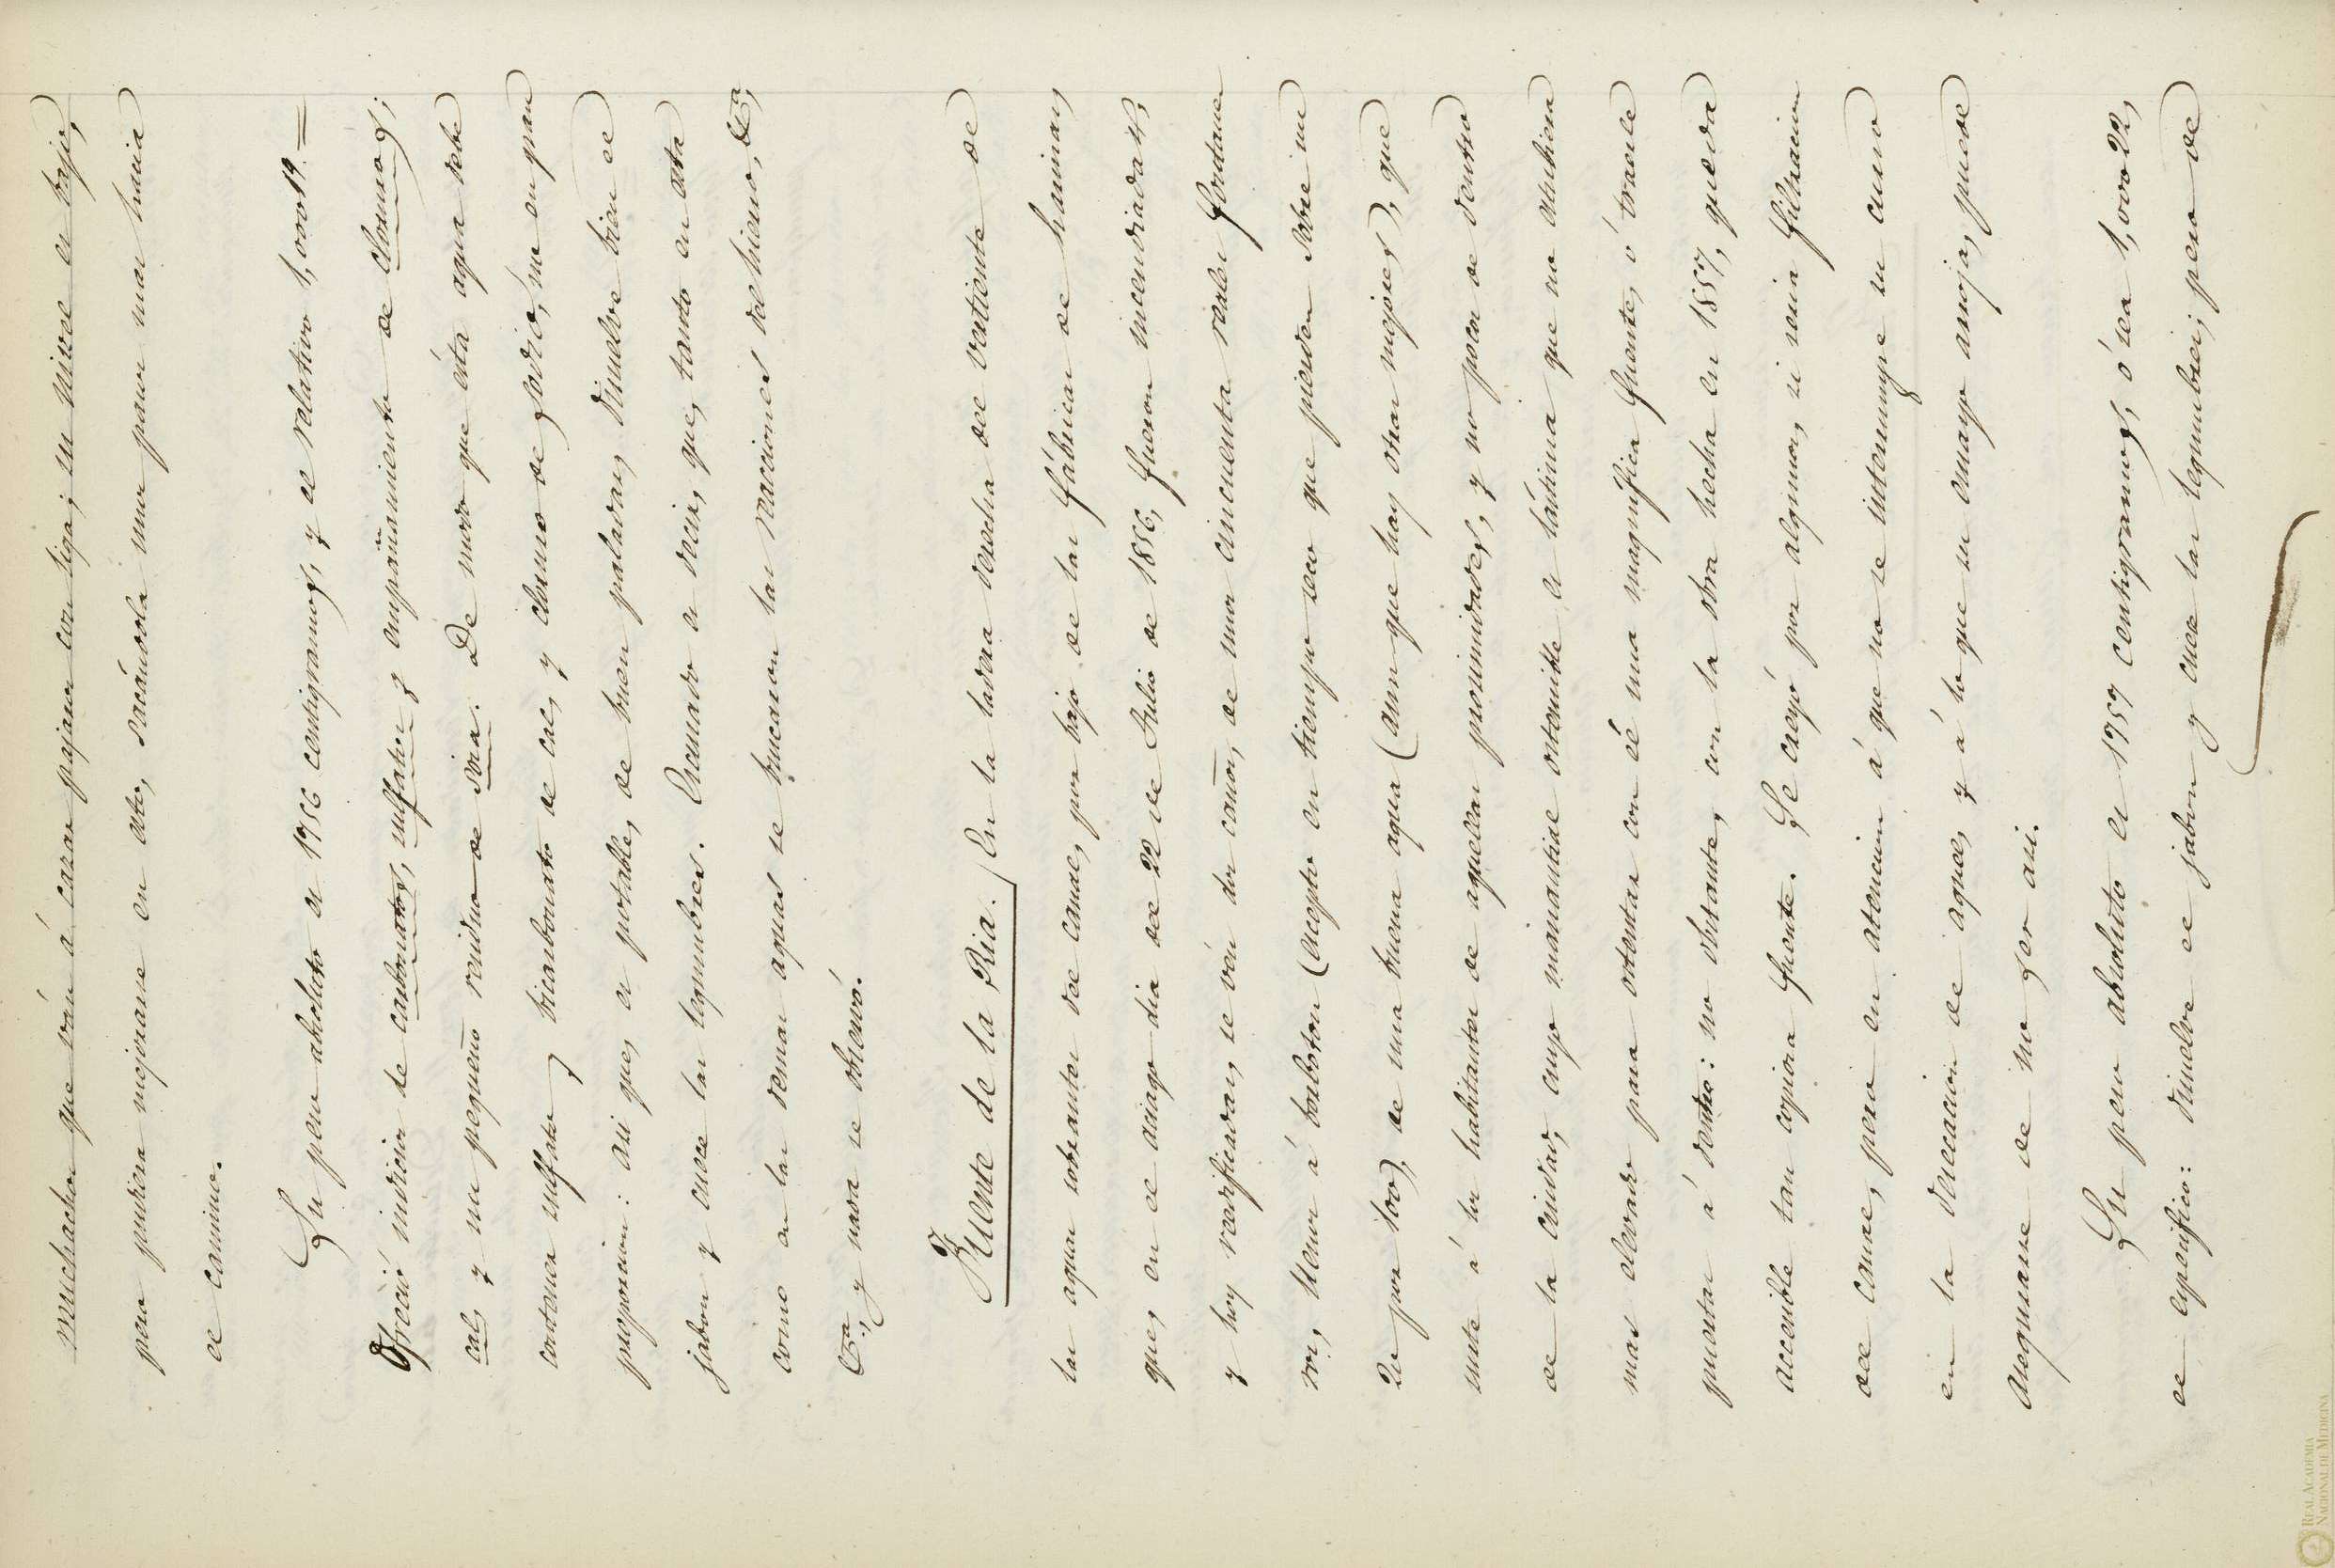 muchachos que ván á cazar pájaros con liga; su nivel es bajo,
pero pudiera mejorarse en esto, sacándola unos pasos mas hacia
el camino.
Su peso absoluto es 1956 centigramos, y el relativo 1,0019.=
Ofreció indicios de carbonatos, sulfatos y empañamiento de cloruros;
cal, y un pequeño residuo de sosa. De modo que ésta agua debe
contener sulfato y bicarbonato de cal, y cloruro de sodio, no en gran
proporcion: asi que, es potable, de buen paladar, disuelve bien el
jabon y cuece las legumbres. Escusado es decir, que, tanto en esta
como en las demas aguas se buscaron las reacciones del hierro, &ª,
&ª, y nada se observó.
Fuente de la Ria. En la ladera derecha del vertiente de
las aguas sobrantes del canal, por bajo de las fábricas de harinas,
que, en el aciago dia del 22 de Julio de 1856, fueron incendiadas,
y hoy reedificadas, se vén dos caños, de unos cincuenta reales fontane-
ros, llenos á borboton (excepto en tiempo seco que pierden sobre un
20 por 100), de una buena agua (aunque hay otras mejores), que
surte á los habitantes de aquellas proximidades, y no pocos de dentro
de la ciudad, cuyo manantial ostensible es lástima que no estuviera
mas elevado para ostentar con él una magnífica fuente, ó traerle
puertas á dentro: no obstante, con la obra hecha en 1857, queda
accesible tan copiosa fuente. Se creyó por algunos, si seria filtracion
del canal, pero en atencion á que no se interrumpe su curso
en la desecacion de aquel, y á lo que su ensayo arroja, puede
asegurarse de no ser asi.
Su peso absoluto es 1957 centigramos, ó sea 1,0022,
el específico: disuelve el jabon y cuece las legumbres; pero de
REAL ACADEMIA
NACIONAL DE MEDICINA